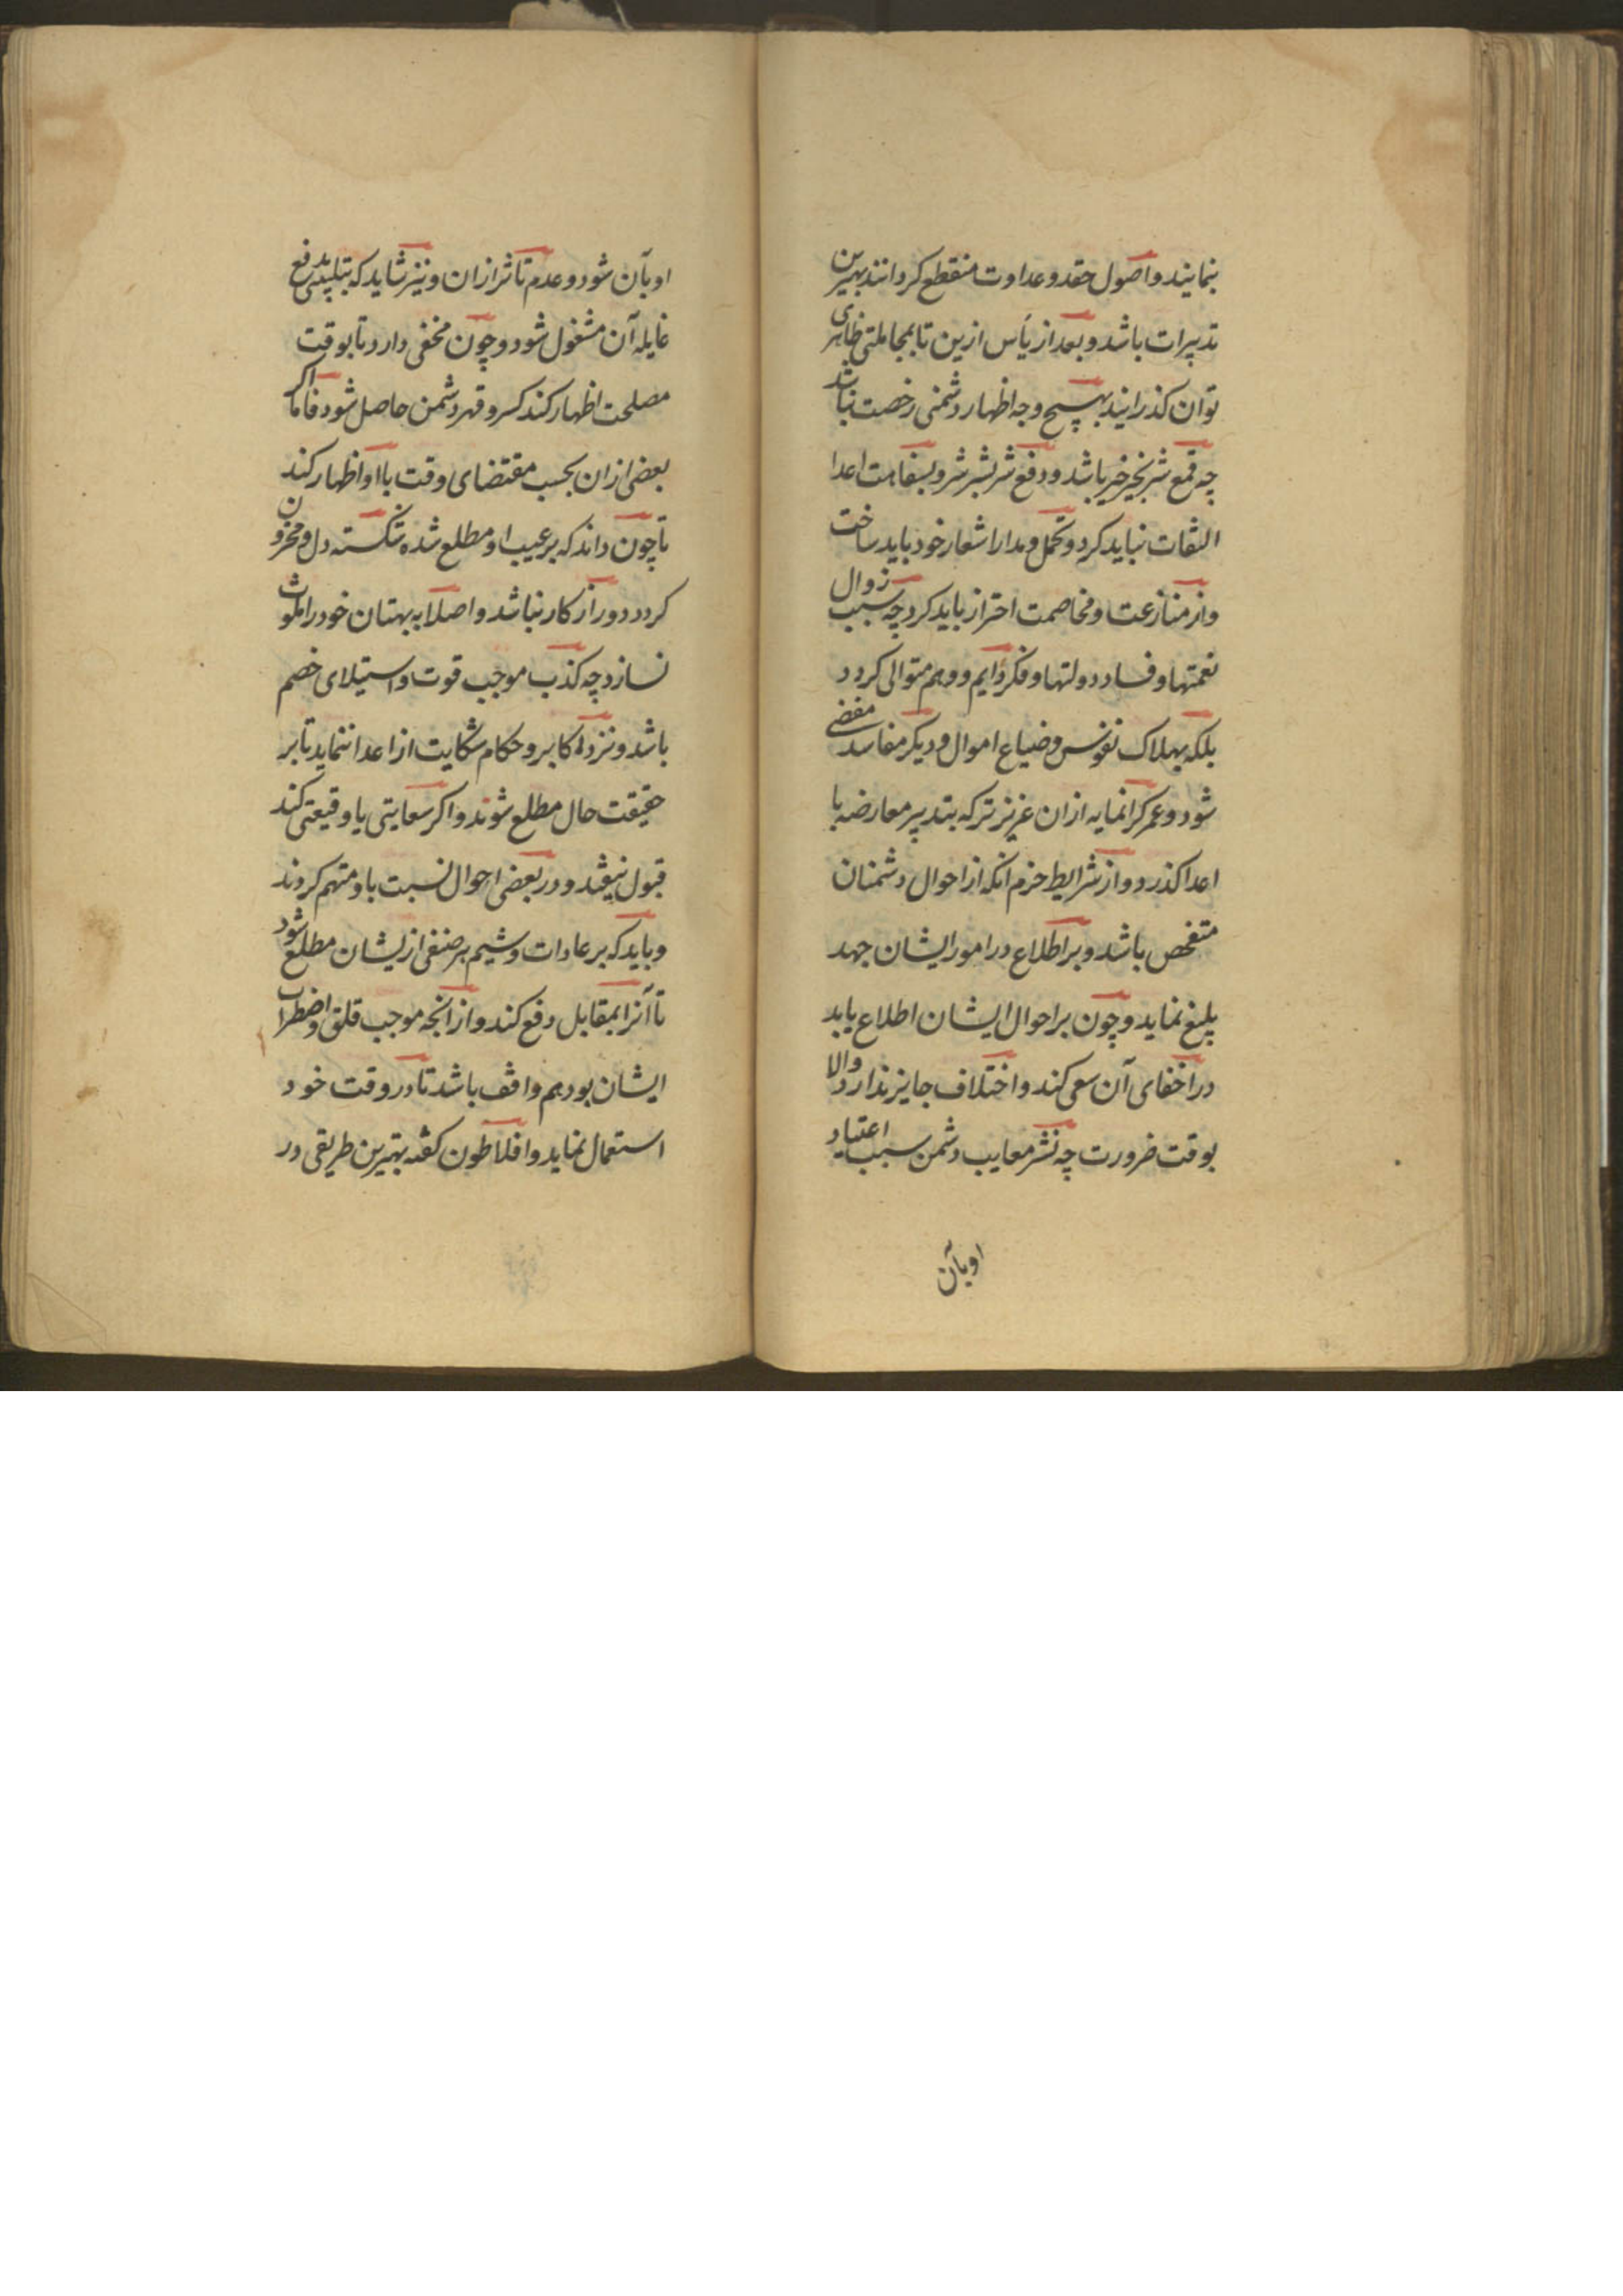 نمایند و اصول حقد و عداوت منقطع کردانند بهترین
تدبیرات باشد و بعد از یأس ازین تا بمجاملتی ظاهری
توان کذرانید بهیچ وجه اظهار دشمنی رخصت نباشد
چه قمع شر بخیر خیر باشد و دفع شر بشر شر و بسفاهت اعدا
التفات نباید کرد و تحمل و مدارا شعار خود باید ساخت
و از منازعت و مخاصمت احتراز باید کرد چه سبب زوال
نعمتها و فساد دولتها و فکر دایم و وهم متوالی کردد
بلکه بهلاک نفوس و ضیاع اموال و دیکر مفاسد مفضی
شود و عمر کرانمایه ازان عزیزتر که بتدبیر معارضه با
اعدا کذرد و از شرایط حزم آنکه از احوال دشمنان
متفحص باشد و بر اطلاع در امور ایشان جهد
بلیغ نماید و چون بر احوال ایشان اطلاع یابد
در اخفای آن سعی کند و اختلاف جایز ندارد و الا
بوقت ضرورت چه نشر معایب دشمن سبب اعتیاد
او بآن
او بآن شود و عدم تاثر ازان و نیز شاید که بتلبیس دفع
غایله آن مشغول شود و چون مخفی دارد تا بوقت
مصلحت اظهار کند کسر و قهر دشمن حاصل شود فاما اکر
بعضی ازان بحسب مقتضای وقت با او اظهار کند
تا چون داند که بر عیب او مطلع شده شکسته دل و محزون
کردد دور از کار نباشد و اصلا به بهتان خود را ملوث
نسازد چه کذب موجب قوت و استیلای خصم
باشد و نزد اکابر و حکام شکایت از اعدا ننماید تا بر
حقیقت حال مطلع شوند و اکر سعایتی یا وقیعتی کند
قبول نیفتد و در بعضی احوال نسبت باو متهم کردند
و باید که بر عادات و شیم هر صنفی ازیشان مطلع شود
تا آنرا بمقابل دفع کند و از آنچه موجب قلق و اضطراب
ایشان بود هم واقف باشد تا در وقت خود
استعمال نماید و افلاطون کفته بهترین طریقی در